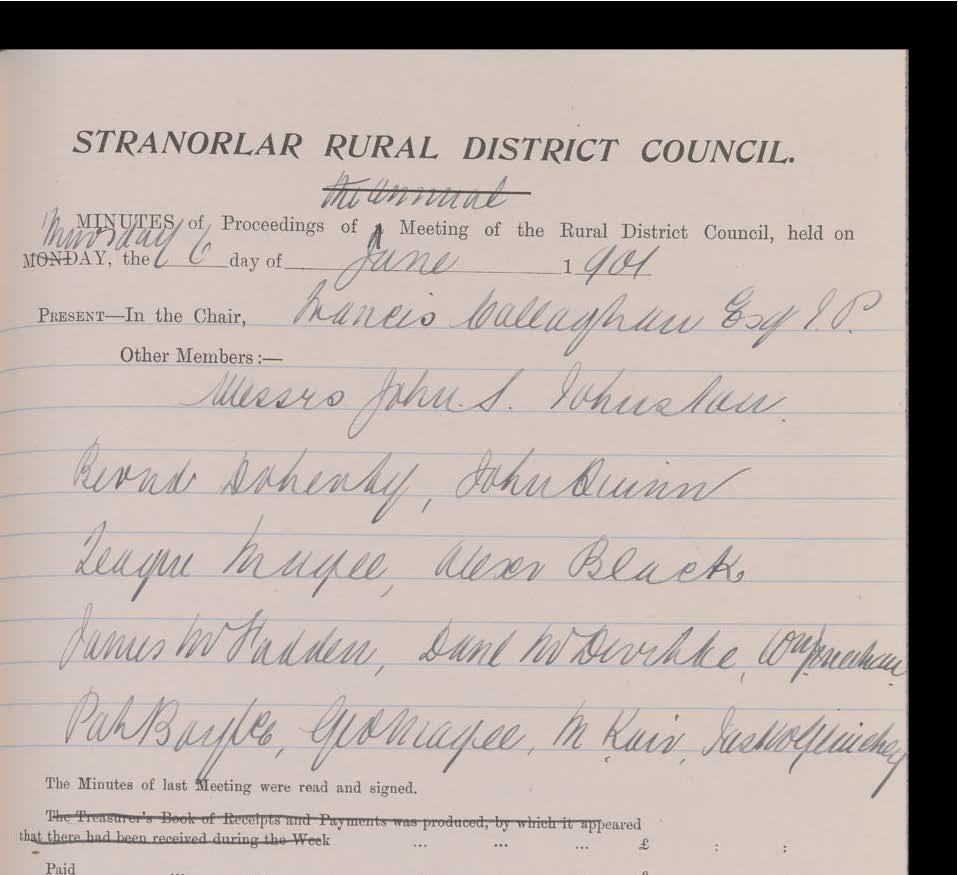 STRANORLAR RURAL DISTRICT COUNCIL.
the annual
MINUTES of Proceedings of A Meeting of the Rural District Council, held on
Thursday
MONDAY, the 6 day of June 1901
PRESENT—In the Chair, Francis Callaghan Esq J.P.
Other Members:—
Messrs John S. Johnston.
Bernd Doherty, John Quinn
Teague Magee, Alexr Black
James McFadden, Danl McDevitte, Wm
Pat Boyle, Geo Magee, M Kair, Jas
The Minutes of last Meeting were read and signed.
The Treasurer's Book of Receipts and Payments was produced, by which it appeared
that there had been received during the Week ... ... ... £ : :
Paid